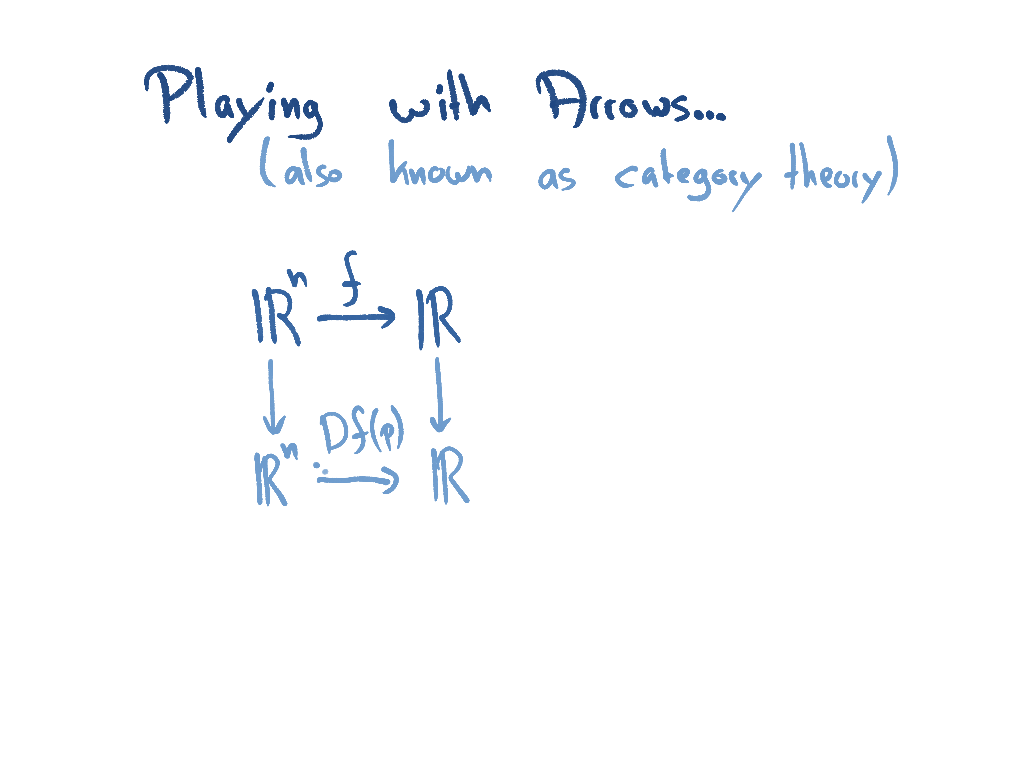 Playing with Arrows...
(also known as category theory)
ℝⁿ f → ℝ
↓ ↓
ℝⁿ Df(p) → ℝ